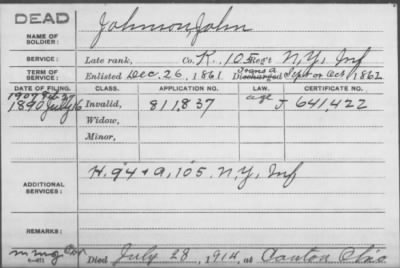 DEAD
NAME OF SOLDIER:
Johnson, John
SERVICE:
Late rank, Co. K, 105 Reg't N.Y. Inf
TERM OF SERVICE:
Enlisted Dec. 26, 1861 Discharged Sept or Oct 1862
DATE OF FILING. CLASS. APPLICATION NO. LAW. CERTIFICATE NO.
1907 Feb 27
1890 July 16 Invalid, 811,837 age J 641,422
Widow,
Minor,
ADDITIONAL SERVICES:
H. 94 & A, 105, N.Y. Inf
REMARKS:
Died July 28, 1914, at Canton Ohio